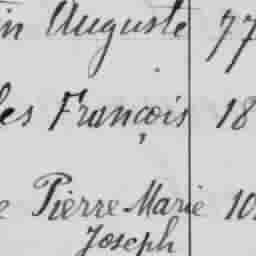 in Auguste 77
les François 18
e Pierre-Marie 10
Joseph